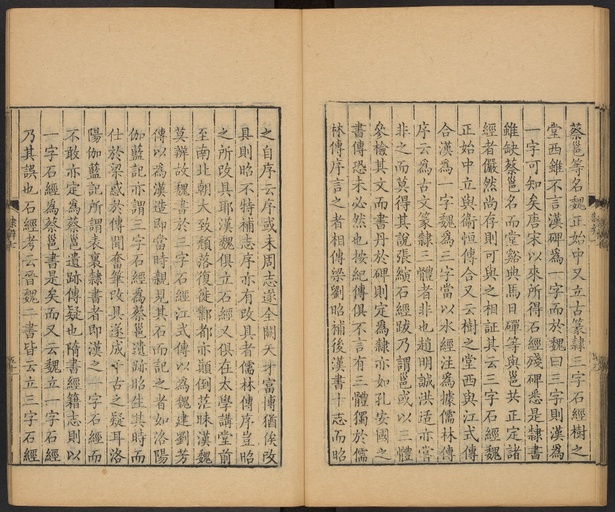 蔡邕等名魏正始中又立古篆隸三字石經樹之
堂西雖不言漢碑為一字而於魏曰三字則漢為
一字可知矣唐宋以來所得石經殘碑悉是隸書
雖缺蔡邕名而堂谿典馬日磾等與邕共正定諸
經者儼然尚存則可與之相証其云三字石經魏
正始中立與衞恒傳合又云樹之堂西與江式傳
合漢為一字魏為三字當以水經注為據儒林傳
序云為古文篆隸三體者非也趙明誠洪适亦嘗
非之而莫得其說張縯石經跋乃謂邕或以三體
參檢其文而書丹於碑則定為隸亦如孔安國之
書傳恐未必然也按紀傳俱不言有三體獨於儒
林傳序言之者相傳梁劉昭補後漢書十志而昭
之自序云序或未周志遂全闕天才富博猶俟改
具則昭不特補志序亦有改具者儒林傳序豈昭
之所改具耶漢魏俱立石經又俱在太學講堂前
至南北朝大致頹落復徙鄴都亦顛倒茫昧漢魏
莫辨故魏書於三字石經江式傳以為魏建劉芳
傳以為漢造即當時親見其石而記之者如洛陽
伽藍記亦謂三字石經為蔡邕遺跡昭生其時而
仕於梁惑於傳聞奮筆改具遂成千古之疑耳洛
陽伽藍記所謂表裏隸書者即漢之一字石經而
不敢亦定為蔡邕遺跡傳疑也隋書經籍志則以
一字石經為蔡邕書是矣而又云魏立一字石經
乃其誤也石經考云晋魏二書皆云立三字石經